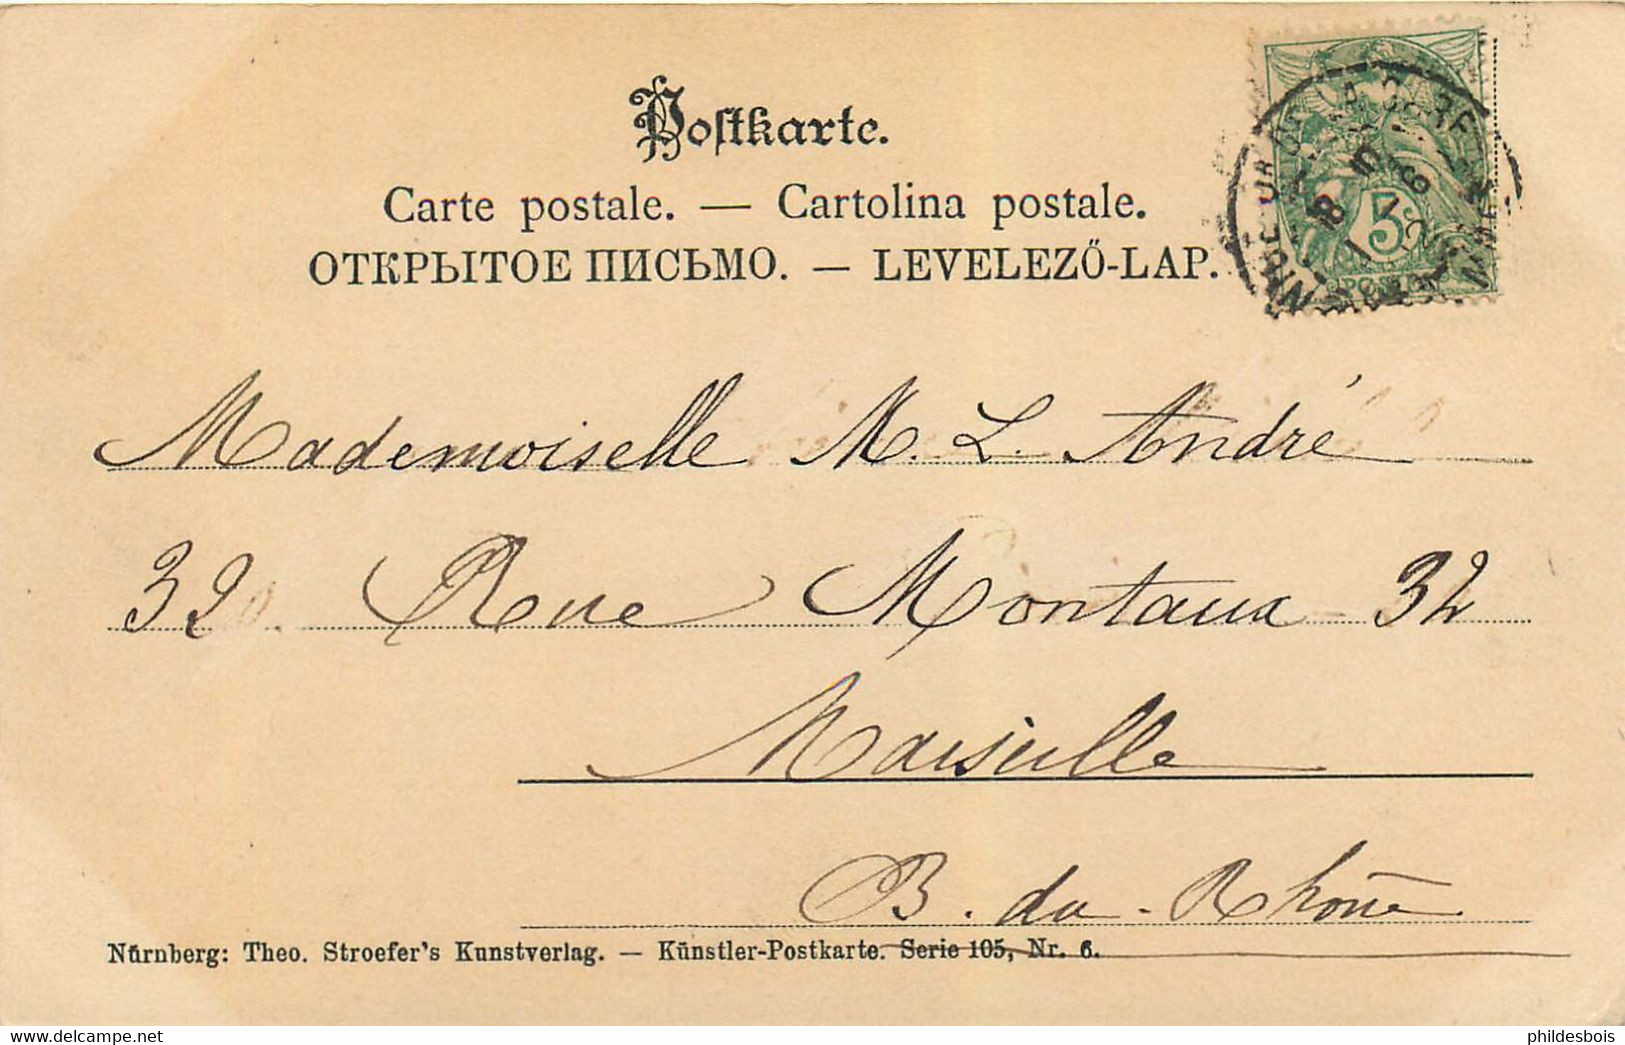 Postkarte.
Carte postale. — Cartolina postale.
ОТКРЫТОЕ ПИСЬМО. — LEVELEZŐ-LAP.
5c
POSTES
Mademoiselle M. L. André
32 Rue Montaux 32
Marseille
B. du Rhône
Nürnberg: Theo. Stroefer's Kunstverlag. — Künstler-Postkarte. Serie 105, Nr. 6.
phildesbois